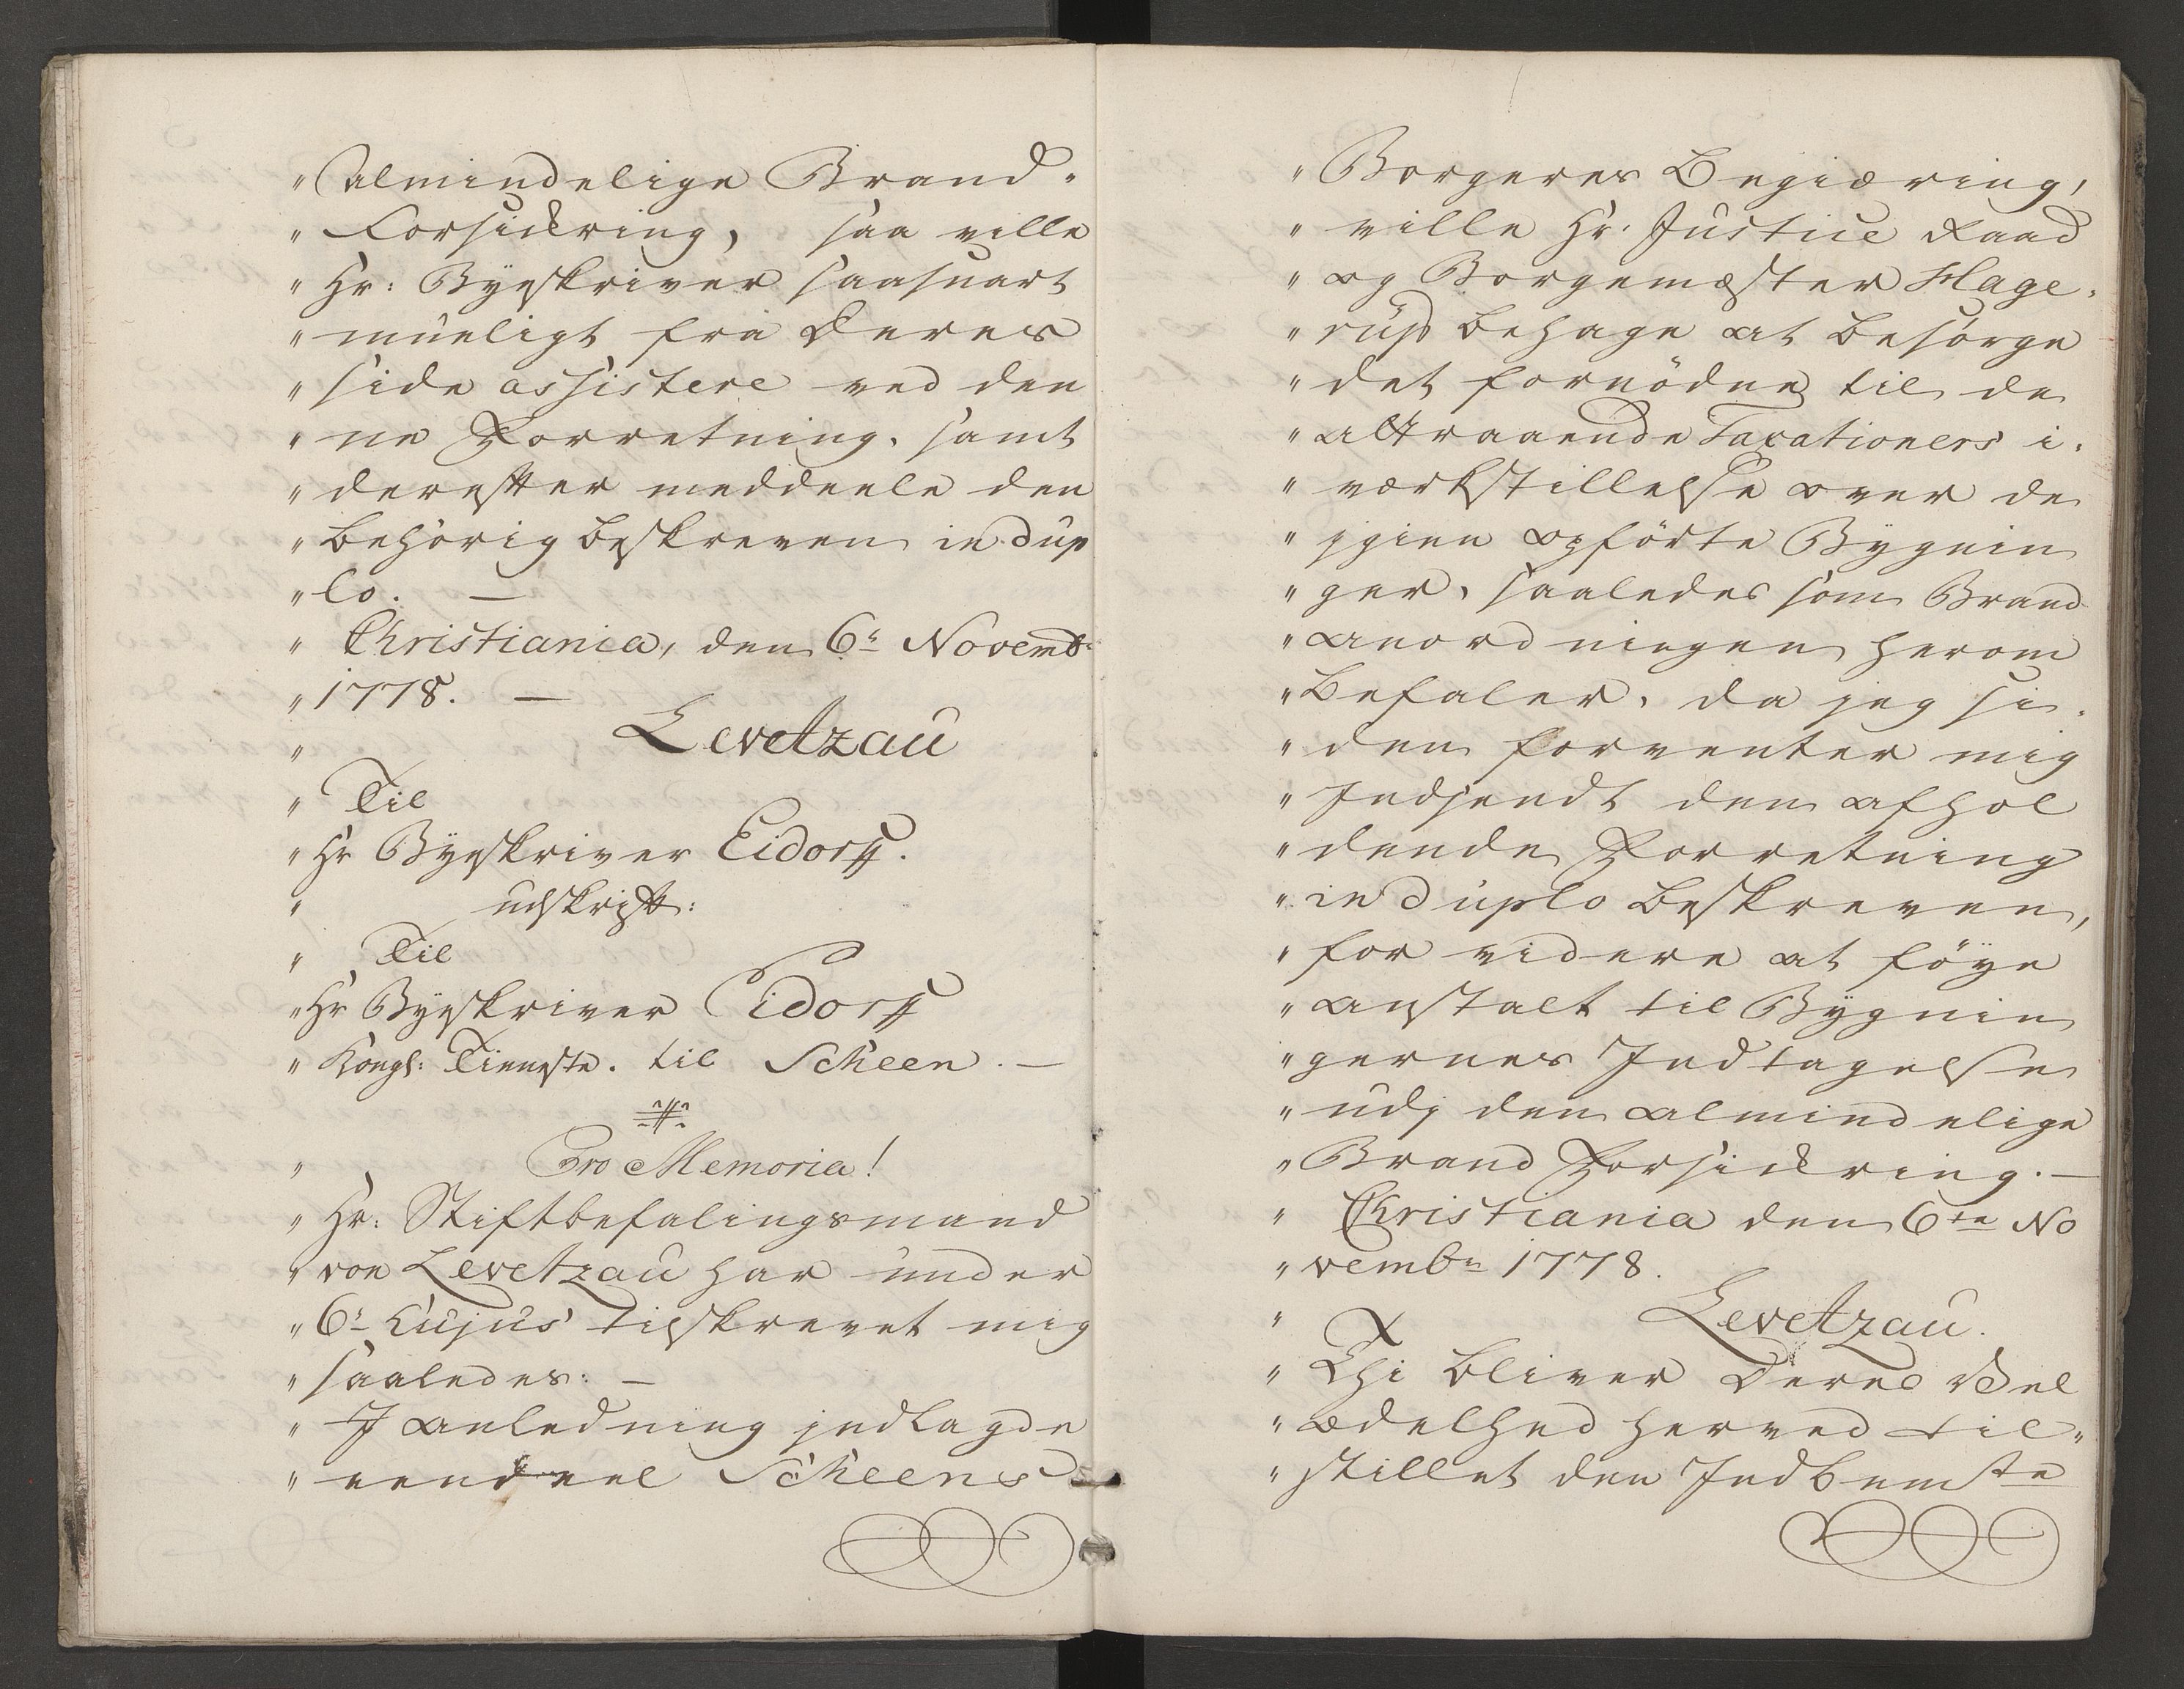 " Almindelige Brand-
" Forsickring, saa ville
" Hr: Byeskriver saasnart
" mueligt fra Deres
" side assistere ved den
" ne Forretning, samt
" derefter meddeele den
" behørig beskreven in dup
" lo. —
" Christiania, den 6te Novembr
" 1778. —
" Levetzau
" Til
" Hr Byeskriver Eidorff.
" udskrift:
" Til
" Hr Byeskriver Eidorff
" Kongl: Tieneste. til Scheen. —
" Pro Memoria!
" Hr: Stiftbefalingsmand
" von Levetzau har under
" 6te hujus tilskrevet mig
" saaledes: —
" I anledning indlagde
" eendeel Scheens
" Borgeres Begiæring,
" ville Hr. Justice Raad
" og Borgemester Hage-
" rup behage at besørge
" det fornødne til de
" attraaende Taxationers i-
" værkstillelse over de
" igien opførte Bygnin
" ger, saaledes som Brand
" anordningen herom
" befaler, da jeg si-
" den forventer mig
" Indsendt den afhol
" dende Forretning
" in duplo beskreven,
" for videre at føye
" anstalt til Bygnin
" gernes Indtagelse
" udj den almindelige
" Brand Forsickring. —
" Christiania den 6te No
" vembr 1778.
" Levetzau.
" Thi bliver Deres Vel
" ædelhed herved til-
" stillet den Indbemte